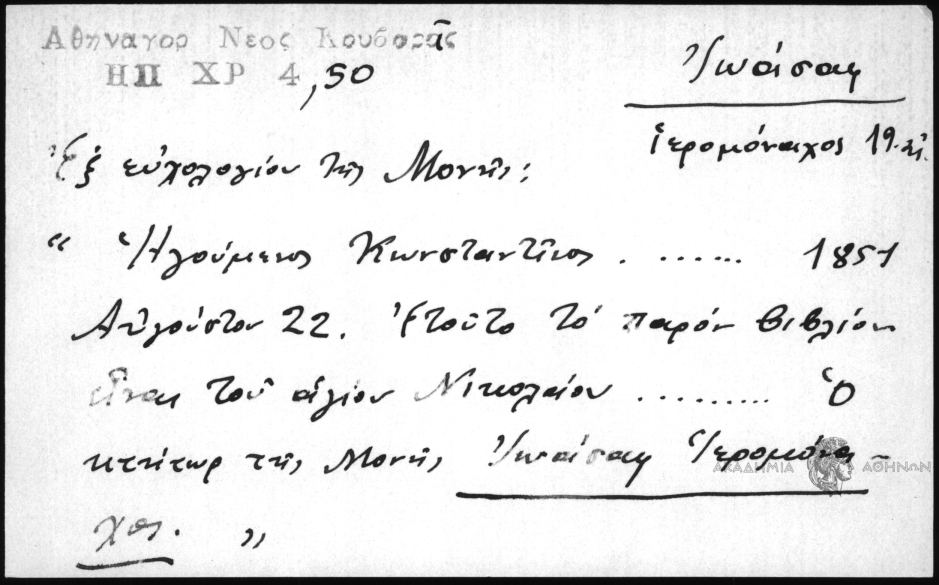 Αθηναγορ Νεος Κουβαρᾶς
ΗΠ ΧΡ 4,50
Ἰωάσαφ
ἱερομόναχος 19. αἰ.
Ἐξ εὐχολογίου τῆς Μονῆς:
“ Ἡγούμενος Κωνσταντῖνος . ...... 1851
Αὐγούστου 22. Ἐτοῦτο τὸ παρόν βιβλίον
εἶναι τοῦ ἁγίου Νικολαίου ......... Ὁ
κτήτωρ τῆς Μονῆς Ἰωάσαφ Ἱερομόνα-
χος. „
ΑΚΑΔΗΜΙΑ ΑΘΗΝΩΝ